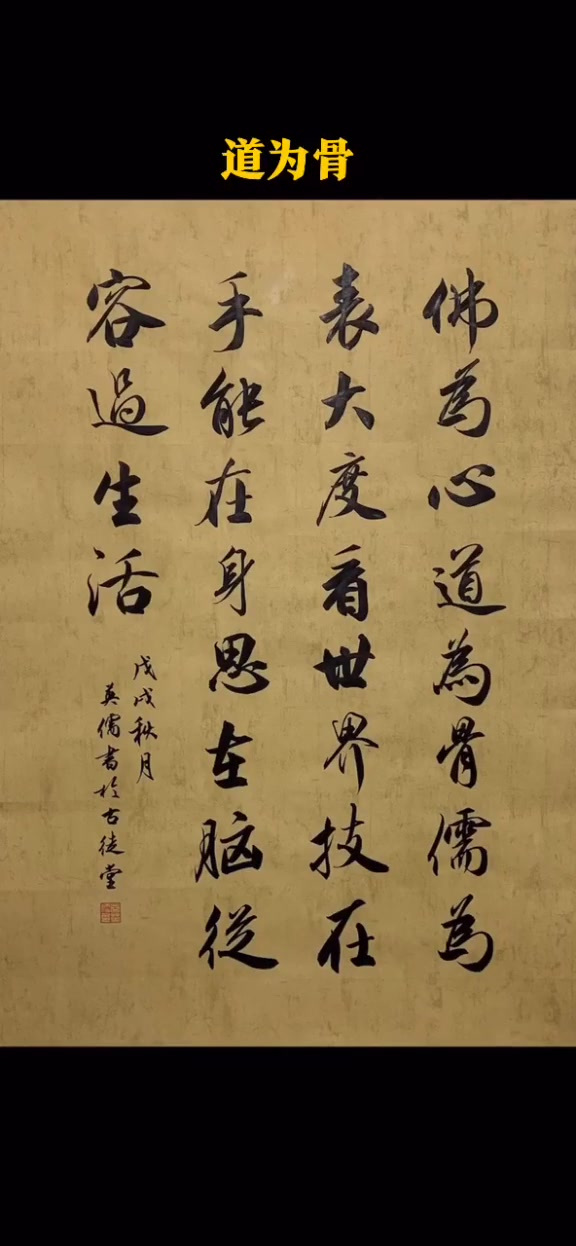 道为骨
佛為心道為骨儒為
表大度看世界技在
手能在身思在脑從
容過生活
戊戌秋月
英儒書於古徒堂